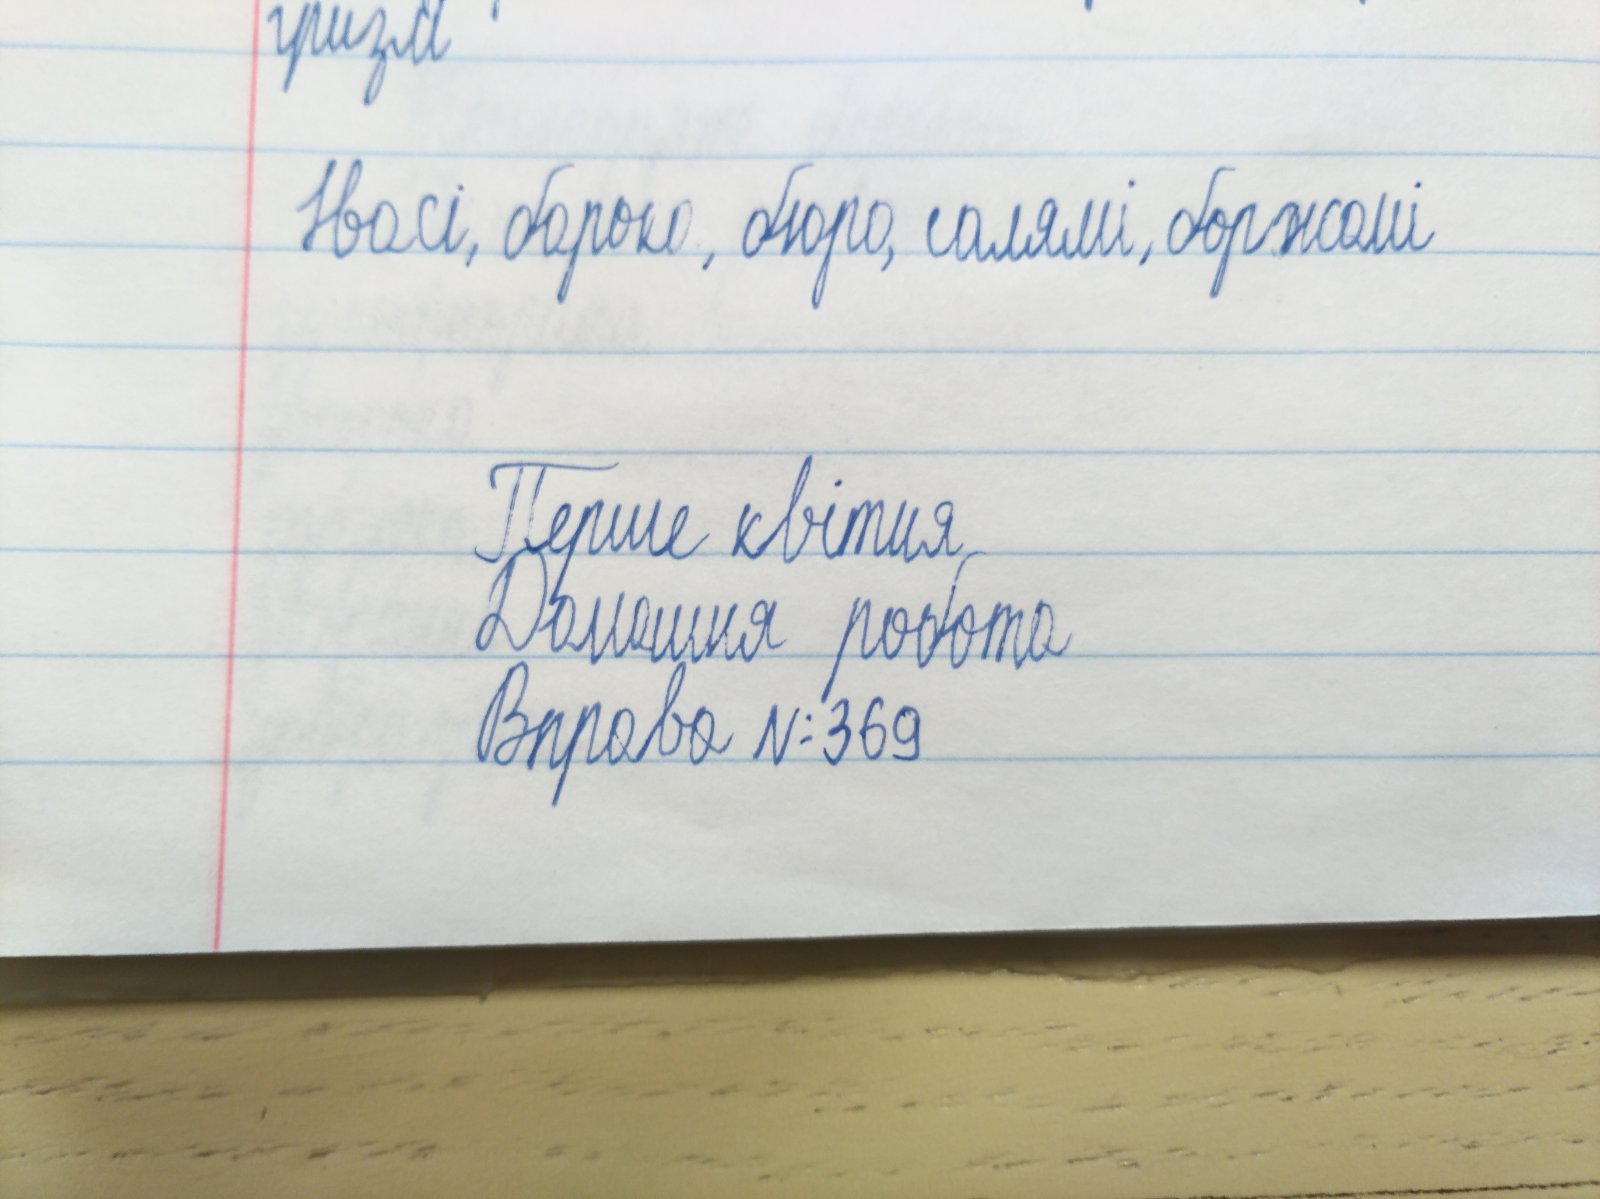 Івасі, бароко, бюро, салямі, боржомі
Перше квітня
Домашня робота
Вправа №369